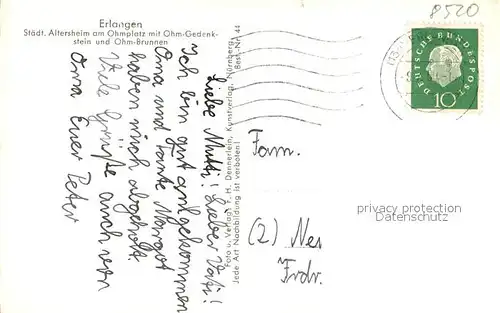 8520
Erlangen
Städt. Altersheim am Ohmplatz mit Ohm-Gedenk-
stein und Ohm-Brunnen
Liebe Mutti! Lieber Vati!
Ich bin gut angekommen
Oma und Tante Margot
haben mich abgeholt.
Viele Grüße auch von
Oma Euer Peter
Best.-Nr. 44
Foto u. Verlag v. H. Dennerlein, Kunstverlag, Nürnberg
Jede Art Nachbildung ist verboten!
DEUTSCHE BUNDESPOST
10
Fam.
(2) Neu
Frdr.
privacy protection
Datenschutz